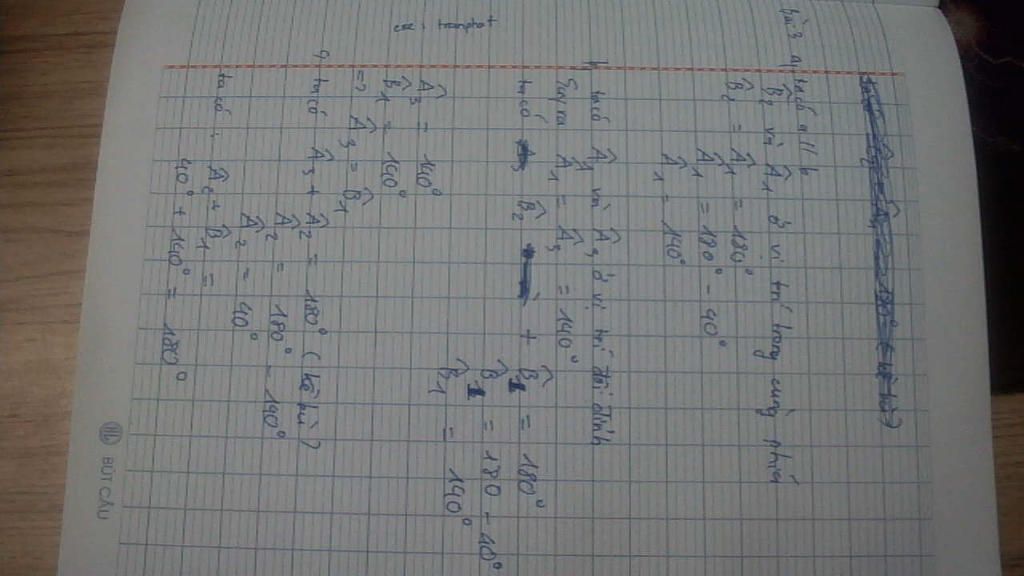 Bài 3 a, ta có a // b
B̂₂ và Â₁ ở vị trí trong cùng phía
B̂₂ = Â₁ = 180°
Â₁ = 180° - 40°
Â₁ = 140°
b, ta có Â₁ và Â₃ ở vị trí đối đỉnh
Suy ra Â₁ = Â₃ = 140°
ta có B̂₂ + B̂₁ = 180°
B̂₁ = 180 - 40°
B̂₁ = 140°
Â₃ = 140°
B̂₁ = 140°
=> Â₃ = B̂₁
ta có Â₃ + Â₂ = 180° (kề bù)
Â₂ = 180° - 140°
Â₂ = 40°
ta có : Â₂ + B̂₁ =
40° + 140° = 180°